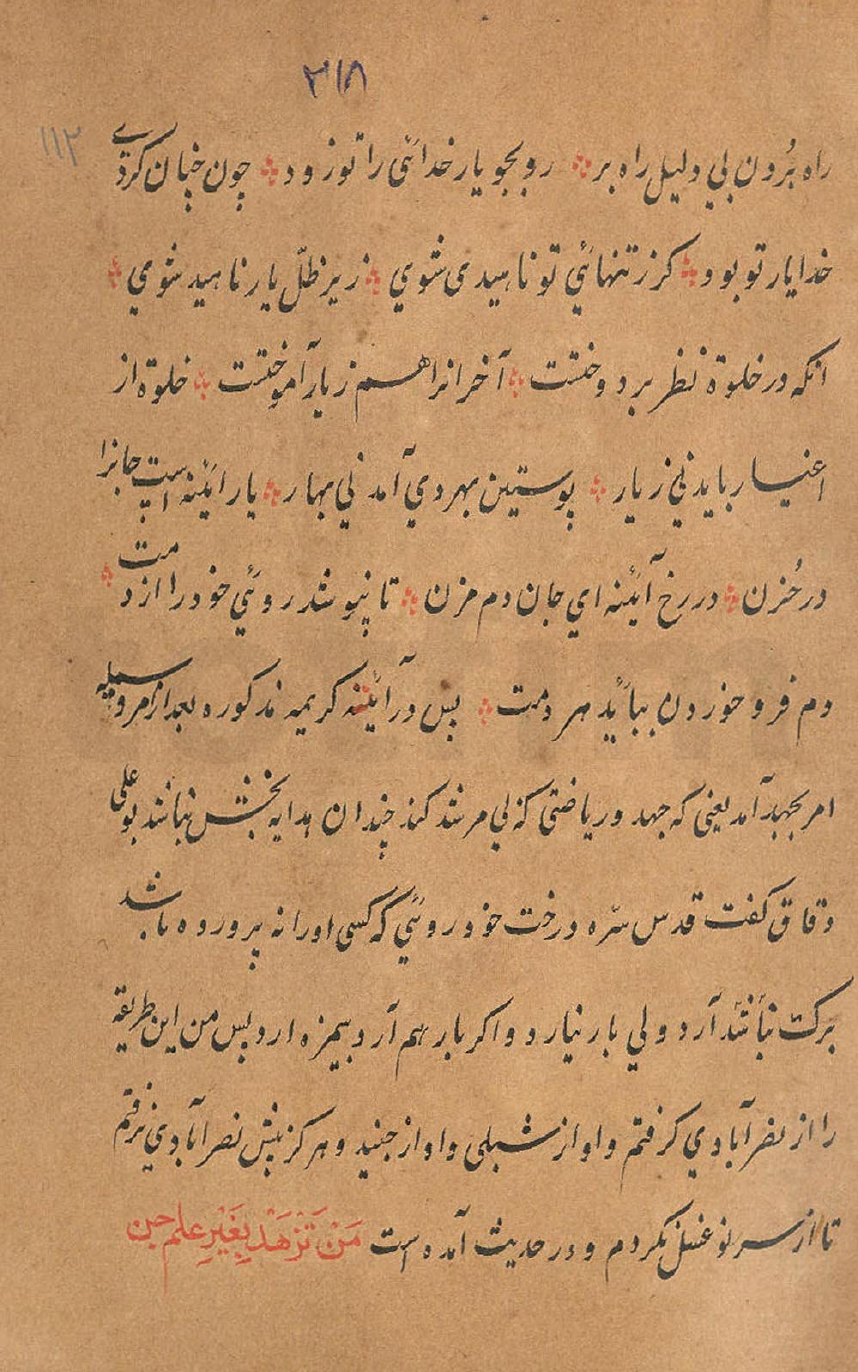 ۳۱۸
۱۱۲
راه بُرُدن بي دليل راه بر رو بجو يار خدائى را تو زود چون چنان كردے
خدا يار تو بود كر ز تنهائي تو ناهيدى شوي زير ظلّ يار ناهيد شوي
انكه در خلوة نظر بر دوختست آخر انرا هم ز يار آموختست خلوة از
اغيار بايد نى ز يار پوستين بهر دي آمد نى بهار يار ائينه است جانرا
در حُزن در رخ آئينه اي جان دم مزن تا نپوشد روئي خود را از دمت
دم فرو خوردن ببائيد هر دمت پس در آئينه كريمه مذكوره بعد از امر وسيله
امر بجهد آمد يعنى كه جهد و رياضتى كه بي مرشد كند چندان هدايه بخش نبائند بو على
دقاق كفت قدس سرّه درخت خود روئي كه كسى اورا نه پرورده باشد
بركت نبأشد آرد ولي بار نيارد و اكر بار هم آرد بيمزه ارد پس من اين طريقه
را از نصرآبادي كرفتم و او از شبلى و او از جنيد و هركز پيش نصرآبادي نرفتم
تا از سر نو غسل نكردم و در حديث آمده است مَنْ تَزَهَّدَ بِغَيْرِ علم جن